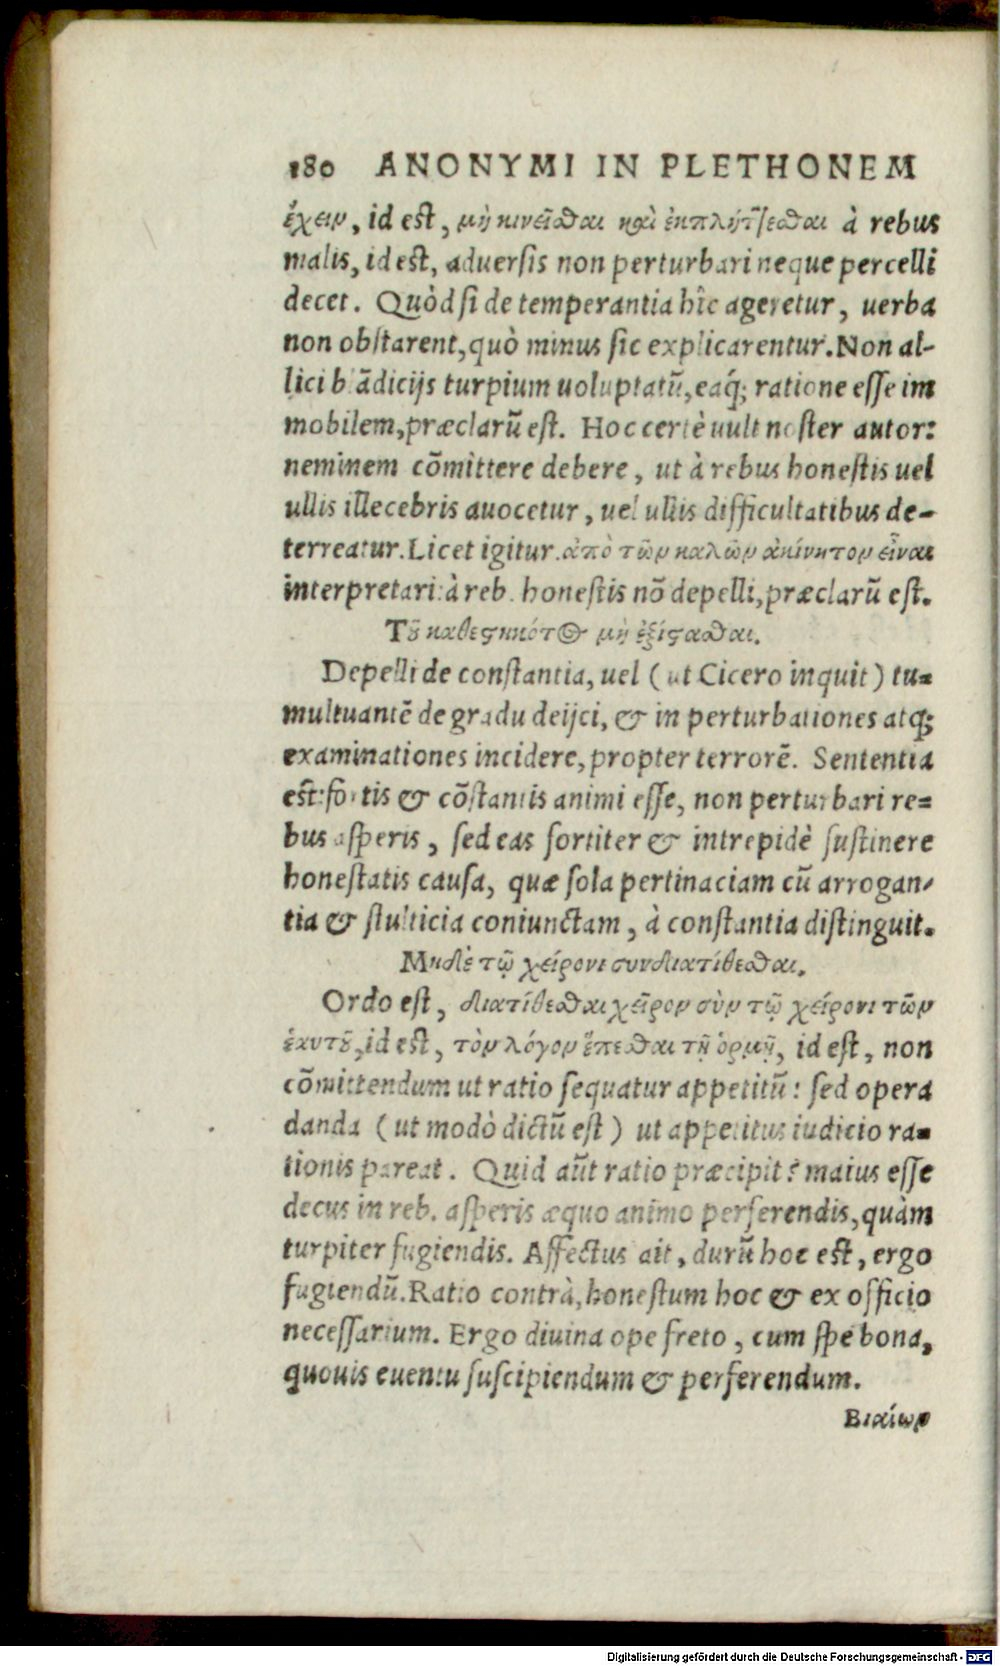 180 ANONYMI IN PLETHONEM
ἔχειν, id est, μὴ κινεῖσθαι καὶ ἐκπλήττεσθαι à rebus
malis, id est, aduersis non perturbari neque percelli
decet. Quòd si de temperantia hîc ageretur, uerba
non obstarent, quò minus sic explicarentur. Non al-
lici blãdicijs turpium uoluptatũ, eaq́; ratione esse im
mobilem, præclarũ est. Hoc certè uult noster autor:
neminem cõmittere debere, ut à rebus honestis uel
ullis illecebris auocetur, uel ullis difficultatibus de-
terreatur. Licet igitur. ἀπὸ τῶν καλῶν ἀκίνητον εἶναι
interpretari: à reb. honestis nõ depelli, præclarũ est.
Τοῦ καθεστηκότος μὴ ἐξίστασθαι.
Depelli de constantia, uel (ut Cicero inquit) tu-
multuantẽ de gradu deijci, & in perturbationes atq;
examinationes incidere, propter terrorẽ. Sententia
est: fortis & cõstantis animi esse, non perturbari re-
bus asperis, sed eas fortiter & intrepidè sustinere
honestatis causa, quæ sola pertinaciam cũ arrogan-
tia & stulticia coniunctam, à constantia distinguit.
Μηδὲ τῷ χείρονι συνδιατίθεσθαι.
Ordo est, διατίθεσθαι χεῖρον σὺν τῷ χείρονι τῶν
ἑαυτοῦ, id est, τὸν λόγον ἕπεσθαι τῇ ὁρμῇ, id est, non
cõmittendum ut ratio sequatur appetitũ: sed opera
danda (ut modò dictũ est) ut appetitus iudicio ra-
tionis pareat. Quid aũt ratio præcipit? maius esse
decus in reb. asperis æquo animo perferendis, quàm
turpiter fugiendis. Affectus ait, durũ hoc est, ergo
fugiendũ. Ratio contrà, honestum hoc & ex officio
necessarium. Ergo diuina ope freto, cum spe bona,
quouis euentu suscipiendum & perferendum.
Βιαίων
Digitalisierung gefördert durch die Deutsche Forschungsgemeinschaft - DFG